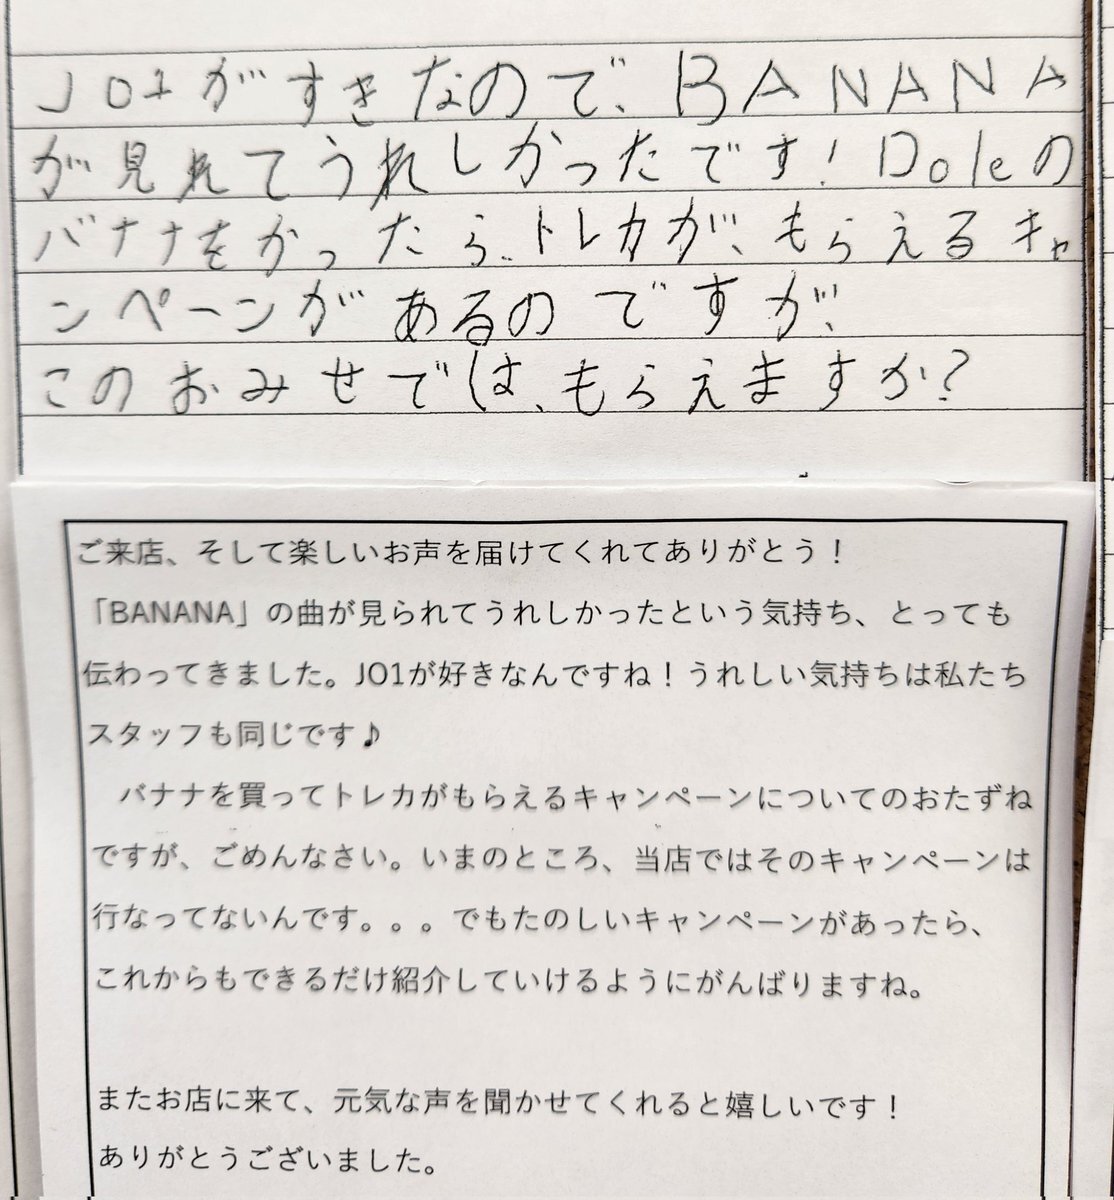 JO1がすきなので、BANANA
が見れてうれしかったです!Doleの
バナナをかったら、トレカが、もらえるキャ
ンペーンがあるのですが、
このおみせでは、もらえますか?
ご来店、そして楽しいお声を届けてくれてありがとう!
「BANANA」の曲が見られてうれしかったという気持ち、とっても
伝わってきました。JO1が好きなんですね!うれしい気持ちは私たち
スタッフも同じです♪
　バナナを買ってトレカがもらえるキャンペーンについてのおたずね
ですが、ごめんなさい。いまのところ、当店ではそのキャンペーンは
行なってないんです。。。でもたのしいキャンペーンがあったら、
これからもできるだけ紹介していけるようにがんばりますね。
またお店に来て、元気な声を聞かせてくれると嬉しいです!
ありがとうございました。